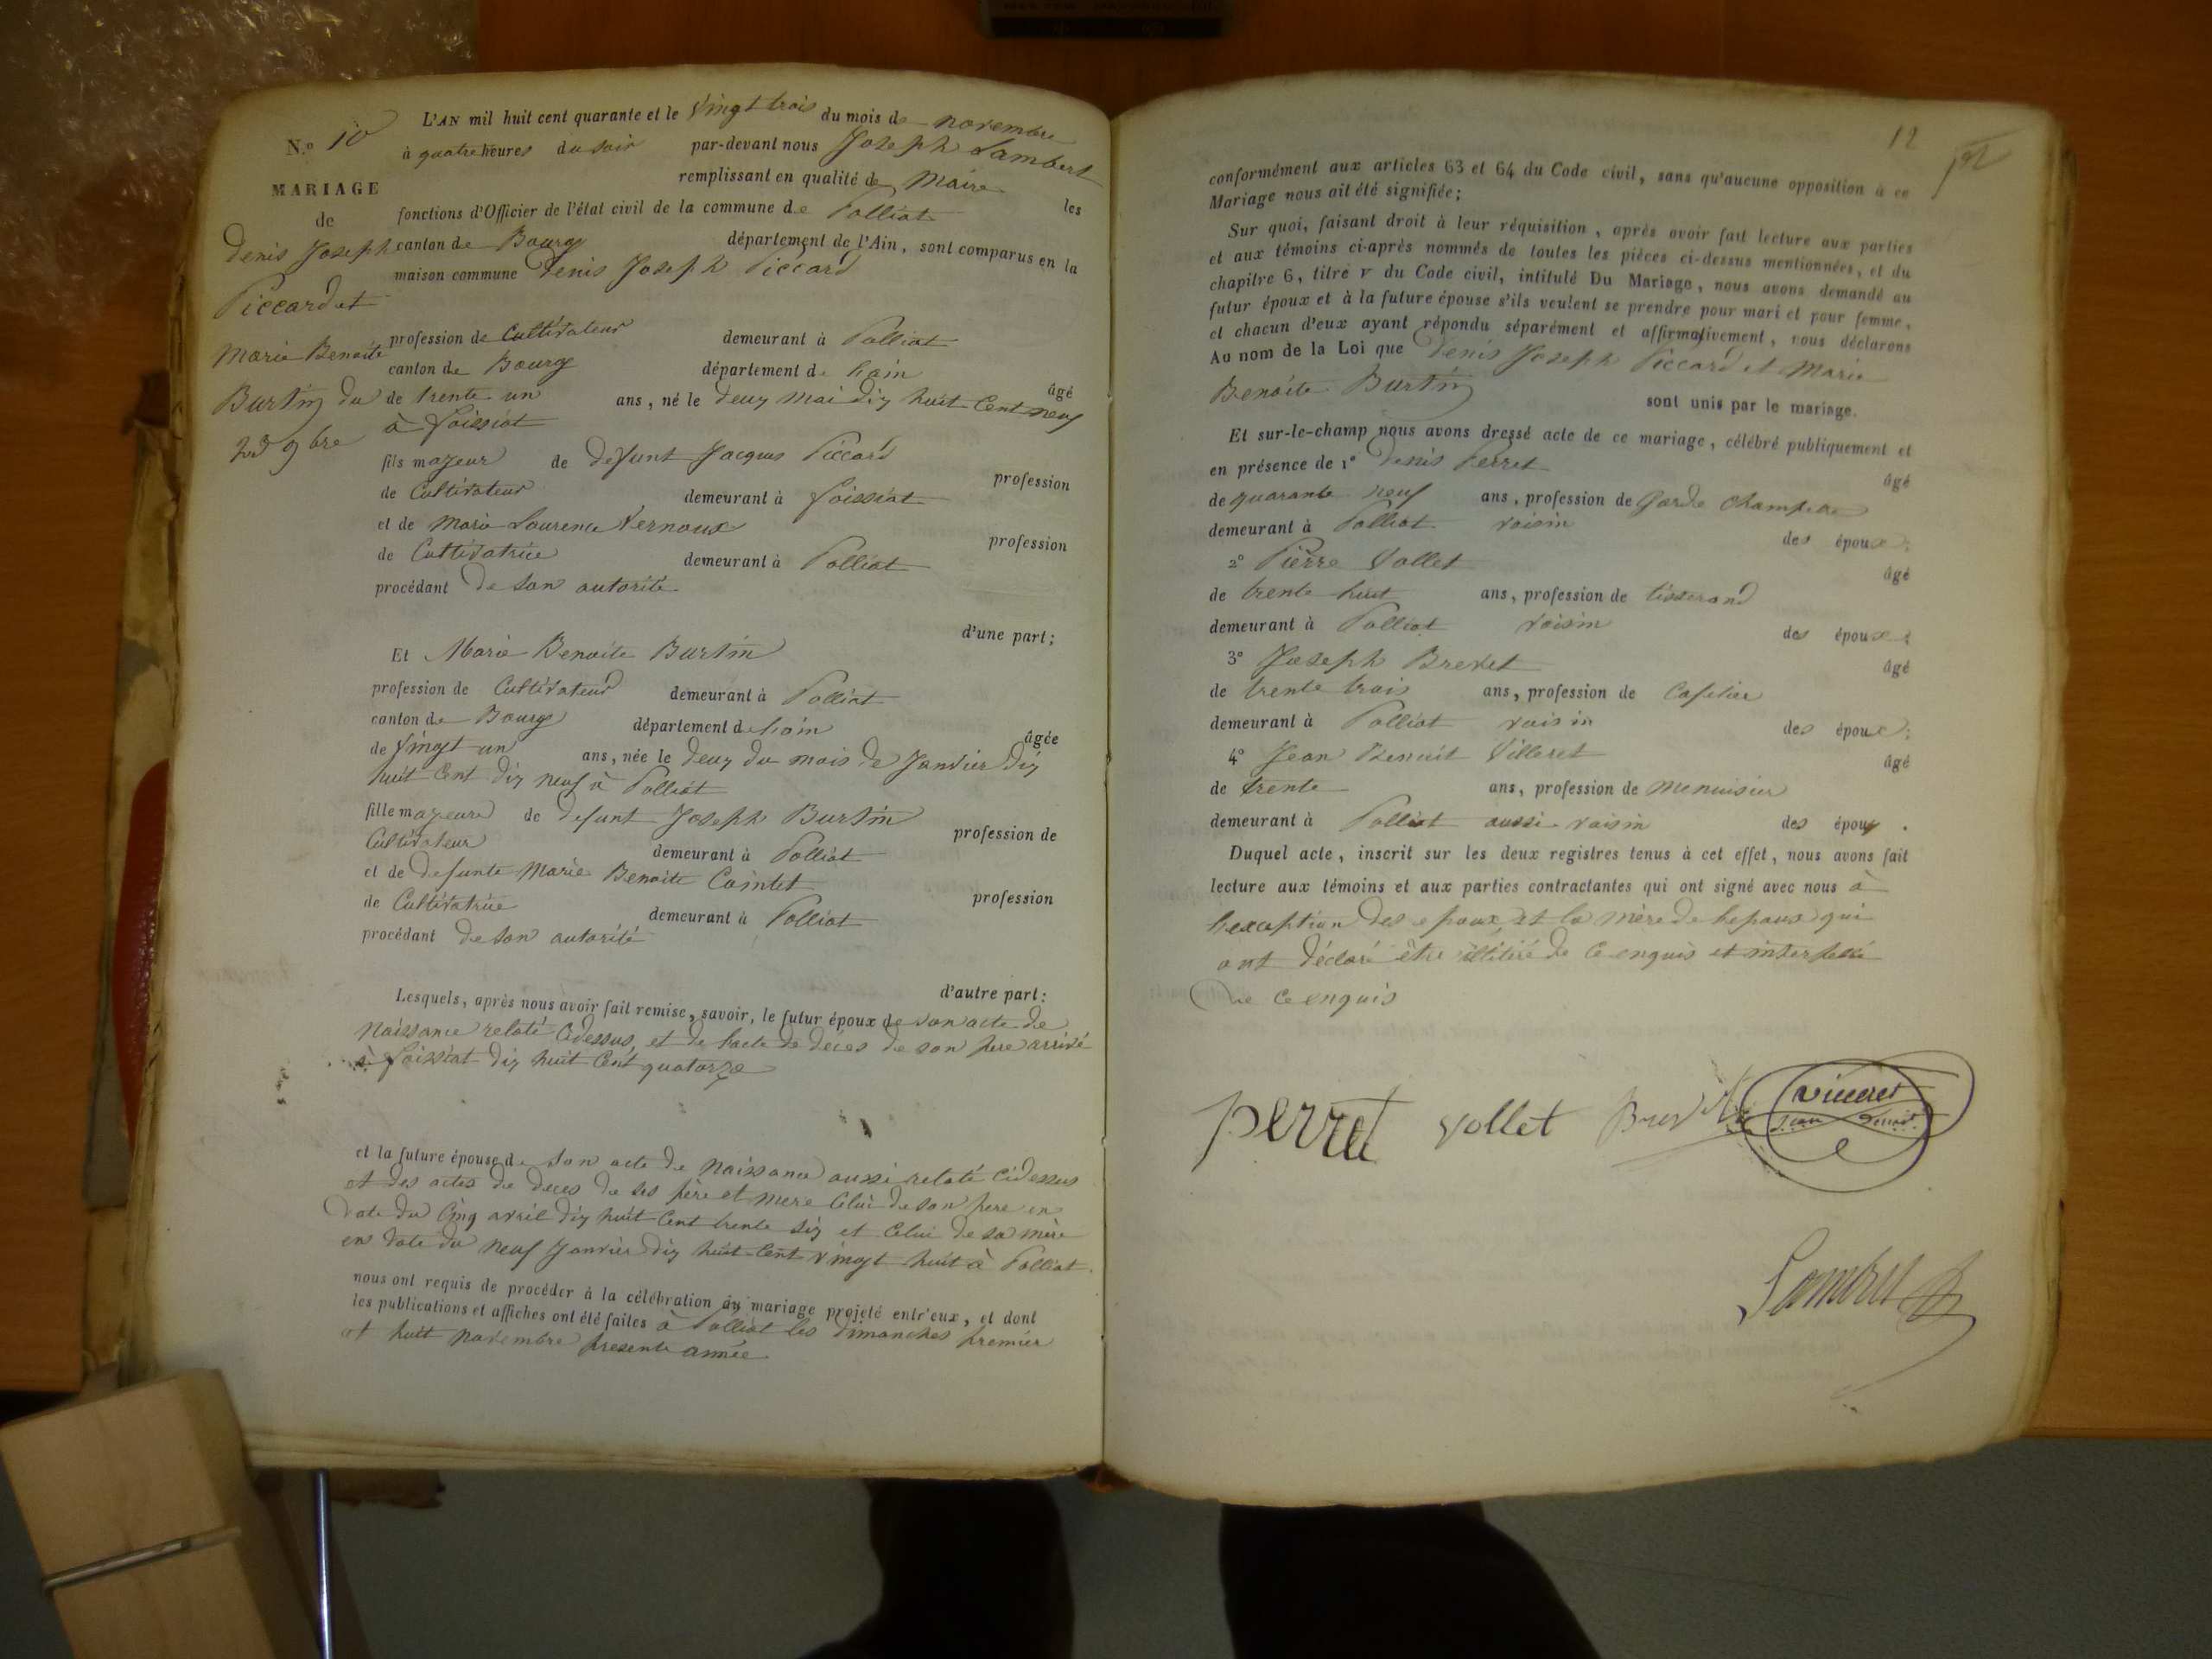 N.o 10
MARIAGE
de
Denis Joseph
Piccard et
Marie Benoite
Burtin du
23 9bre
L'AN mil huit cent quarante et le vingt trois du mois de novembre
à quatre heures du soir par-devant nous Joseph Lambert
remplissant en qualité de Maire les
fonctions d'Officier de l'état civil de la commune de Polliat
canton de Bourg département de l'Ain, sont comparus en la
maison commune Denis Joseph Piccard
profession de Cultivateur demeurant à Polliat
canton de Bourg département de l'ain âgé
de trente un ans, né le deux mai dix huit Cent neuf
à Foissiat
fils majeur de defunt Jacques Piccard profession
de Cultivateur demeurant à Foissiat
et de Marie Laurence Vernoux profession
de Cultivatrice demeurant à Polliat
procédant de son autorité
d'une part;
Et Marie Benoite Burtin
profession de Cultivateur demeurant à Polliat
canton de Bourg département de l'ain âgée
de vingt un ans, née le deux du mois de Janvier dix
huit Cent dix neuf à Polliat
fille majeure de defunt Joseph Burtin profession de
Cultivateur demeurant à Polliat
et de defunte Marie Benoite Cointet profession
de Cultivatrice demeurant à Polliat
procédant de son autorité
d'autre part:
Lesquels, après nous avoir fait remise, savoir, le futur époux de son acte de
Naissance relaté Cidessus, et de l'acte de décès de son pere arrivé
à Foissiat dix huit Cent quatorze
et la future épouse de son acte de Naissance aussi relaté cidessus
et des actes de deces de ses père et mere Celui de son pere en
date du Cinq avril dix huit Cent trente six et Celui de sa mère
en date du neuf Janvier dix huit Cent vingt huit à Polliat.
nous ont requis de procéder à la célébration du mariage projeté entr'eux, et dont
les publications et affiches ont été faites à Polliat les dimanches premier
et huit novembre presente année
12
conformément aux articles 63 et 64 du Code civil, sans qu'aucune opposition à ce
Mariage nous ait été signifiée;
Sur quoi, faisant droit à leur réquisition, après avoir fait lecture aux parties
et aux témoins ci-après nommés de toutes les pièces ci-dessus mentionnées, et du
chapitre 6, titre v du Code civil, intitulé Du Mariage, nous avons demandé au
futur époux et à la future épouse s'ils veulent se prendre pour mari et pour femme,
et chacun d'eux ayant répondu séparément et affirmativement, nous déclarons
Au nom de la Loi que Denis Joseph Piccard et Marie
Benoite Burtin
sont unis par le mariage.
Et sur-le-champ nous avons dressé acte de ce mariage, célébré publiquement et
en présence de 1° Denis Perret âgé
de quarante neuf ans, profession de Garde Champetre
demeurant à Polliat voisin des époux;
2° Pierre Vollet âgé
de trente huit ans, profession de tisserand
demeurant à Polliat voisin des époux;
3° Joseph Brevet âgé
de trente trois ans, profession de Cafetier
demeurant à Polliat voisin des époux;
4° Jean Benoit Villeret âgé
de trente ans, profession de Menuisier
demeurant à Polliat aussi voisin des époux.
Duquel acte, inscrit sur les deux registres tenus à cet effet, nous avons fait
lecture aux témoins et aux parties contractantes qui ont signé avec nous à
l'exception des epoux et la mère de l'epoux qui
ont déclaré être illitiré de Ce enquis et interpellé
De Ce enquis
perret vollet Brevet viveret
Jean Benoit
Lambert